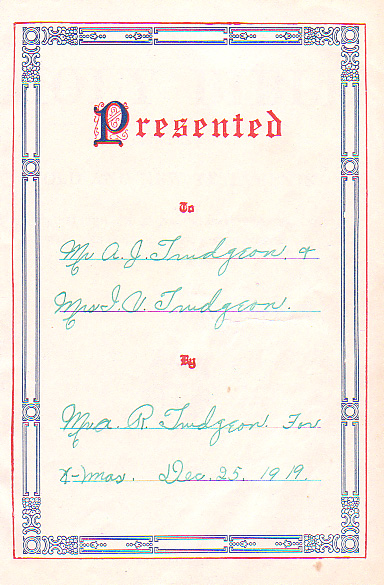 Presented
To
Mr A. J. Trudgeon &
Mrs I. V. Trudgeon.
By
Mr A. R. Trudgeon. For
X-mas. Dec. 25, 1919.